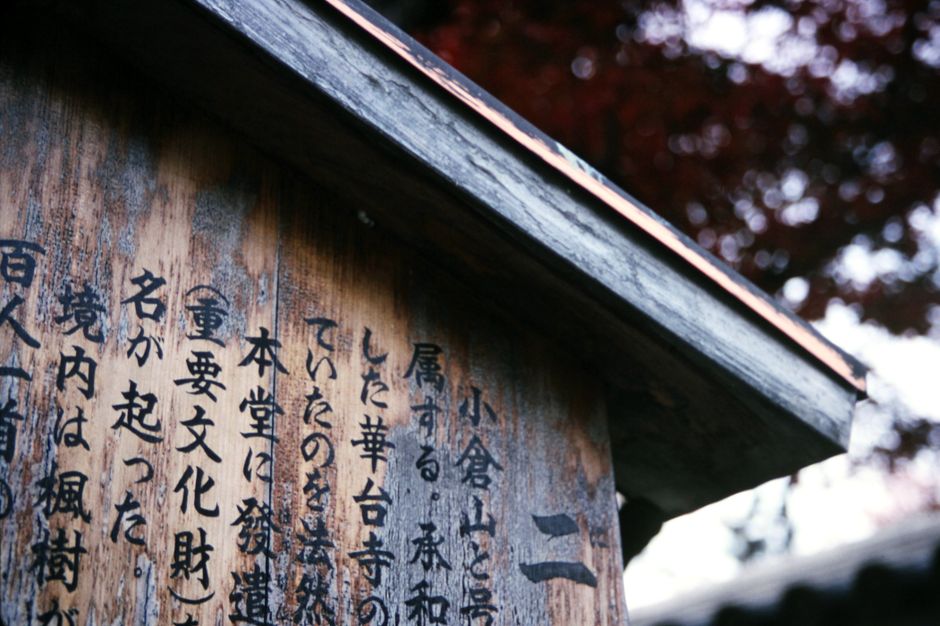 二
小倉山と号
属する。承和
した華台寺の
ていたのを法然
本堂に發遣
（重要文化財）
名が起った。
境内は楓樹が
百人一首